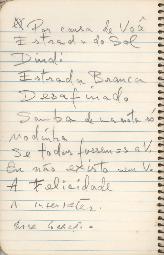 Por causa de Você
Estrada do Sol
Dindi
Estrada Branca
Desafinado
Samba de uma nota só
modinha
Se todos fossem = a V.
Eu não existo sem V.
A Felicidade